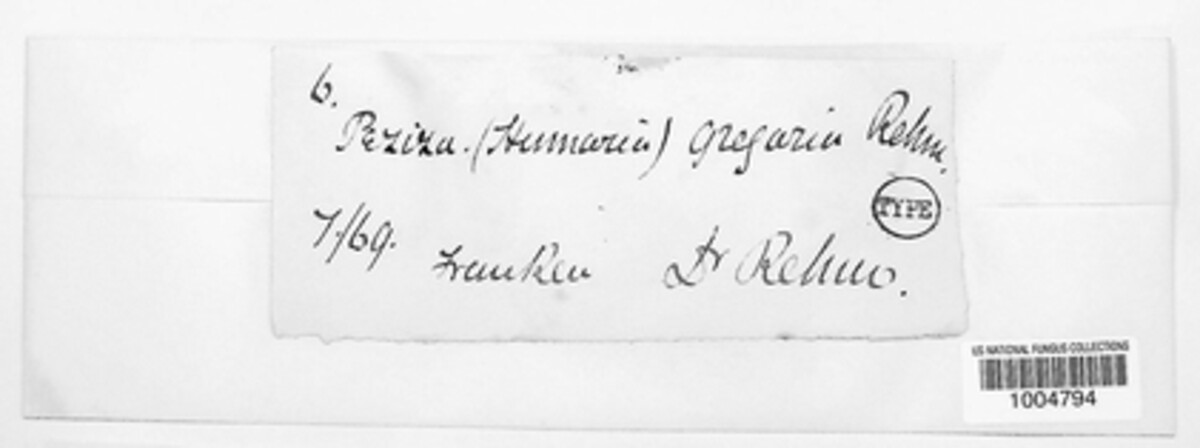 6.
Peziza. (Humaria) gregaria Rehm.
TYPE
7/69. Franken Dr Rehm.
US NATIONAL FUNGUS COLLECTIONS
1004794